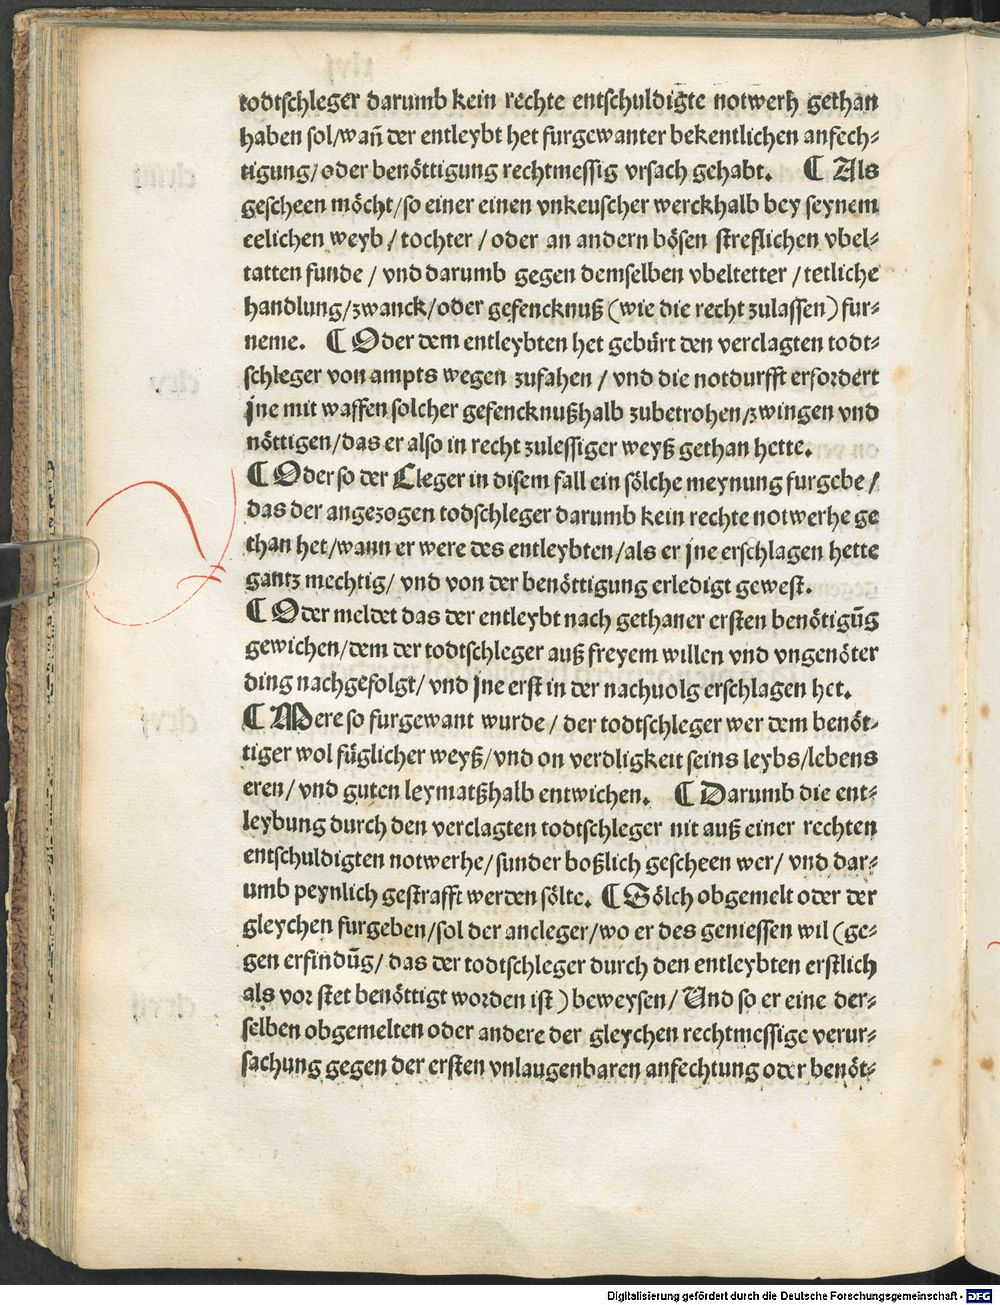 todtschleger darumb kein rechte entschuldigte notwerh gethan
haben sol/wañ der entleybt het furgewanter bekentlichen anfech⸗
tigung/oder benöttigung rechtmessig vrsach gehabt. ¶ Als
gescheen möcht/so einer einen vnkeuscher werckhalb bey seynem
eelichen weyb/tochter/oder an andern bösen streflichen vbel⸗
tatten funde/vnd darumb gegen demselben vbeltetter/tetliche
handlung/zwanck/oder gefencknuß (wie die recht zulassen) fur⸗
neme. ¶ Oder dem entleybten het gebürt den verclagten todt⸗
schleger von ampts wegen zufahen/vnd die notdurfft erfordert
jne mit waffen solcher gefencknußhalb zubetrohen/zwingen vnd
nöttigen/das er also in recht zulessiger weyß gethan hette.
¶ Oder so der Cleger in disem fall ein sölche meynung furgebe/
das der angezogen todschleger darumb kein rechte notwerhe ge
than het/wann er were des entleybten/als er jne erschlagen hette
gantz mechtig/vnd von der benöttigung erledigt gewest.
¶ Oder meldet das der entleybt nach gethaner ersten benötigũg
gewichen/dem der todtschleger auß freyem willen vnd vngenöter
ding nachgefolgt/vnd jne erst in der nachuolg erschlagen het.
¶ Mere so furgewant wurde/der todtschleger wer dem benöt⸗
tiger wol füglicher weyß/vnd on verdligkeit seins leybs/lebens
eren/vnd guten leymatßhalb entwichen. ¶ Darumb die ent⸗
leybung durch den verclagten todtschleger nit auß einer rechten
entschuldigten notwerhe/sunder boßlich gescheen wer/vnd dar⸗
umb peynlich gestrafft werden sölte. ¶ Sölch obgemelt oder der
gleychen furgeben/sol der ancleger/wo er des geniessen wil (ge⸗
gen erfindũg/das der todtschleger durch den entleybten erstlich
als vor stet benöttigt worden ist) beweysen/Und so er eine der⸗
selben obgemelten oder andere der gleychen rechtmessige verur⸗
sachung gegen der ersten vnlaugenbaren anfechtung oder benöt⸗
Digitalisierung gefördert durch die Deutsche Forschungsgemeinschaft - DFG